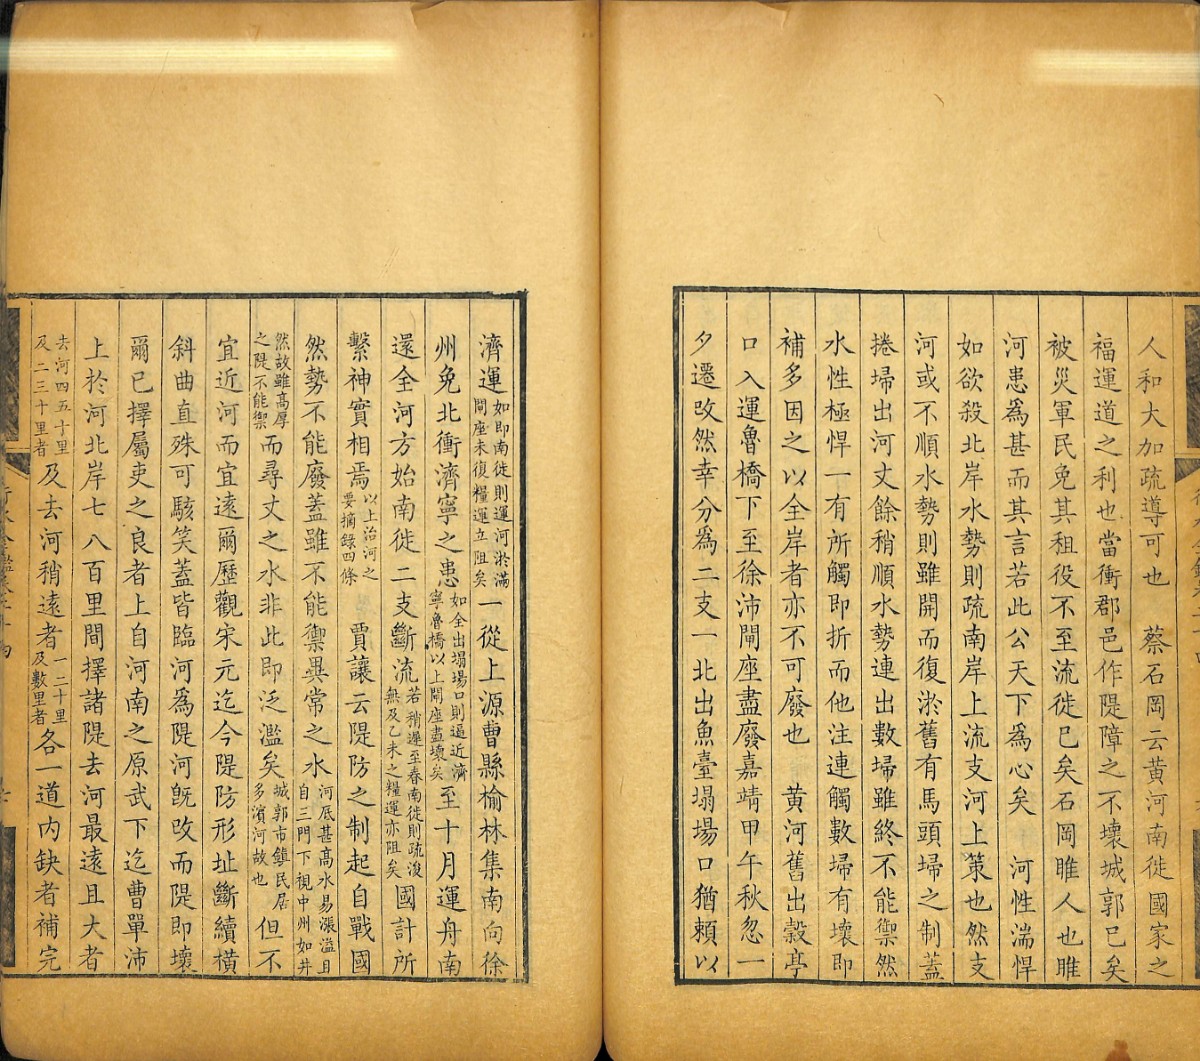 人和大加疏導可也　蔡石岡云黃河南徙國家之
福運道之利也當衝郡邑作隄障之不壞城郭已矣
被災軍民免其租役不至流徙已矣石岡睢人也睢
河患爲甚而其言若此公天下爲心矣　河性湍悍
如欲殺北岸水勢則疏南岸上流支河上策也然支
河或不順水勢則雖開而復淤舊有馬頭埽之制蓋
捲埽出河丈餘稍順水勢連出數埽雖終不能禦然
水性極悍一有所觸即折而他注連觸數埽有壞即
補多因之以全岸者亦不可廢也　黃河舊出穀亭
口入運魯橋下至徐沛閘座盡廢嘉靖甲午秋忽一
夕遷改然幸分爲二支一北出魚臺塌場口猶賴以
濟運如即南徙則運河淤滿閘座未復糧運立阻矣一從上源曹縣榆林集南向徐
州免北衝濟寧之患如全出塌場口則逼近濟寧魯橋以上閘座盡壞矣至十月運舟南
還全河方始南徙二支斷流若稍遲至春南徙則疏浚無及乙未之糧運亦阻矣國計所
繫神實相焉以上治河之要摘錄四條　賈讓云隄防之制起自戰國
然勢不能廢蓋雖不能禦異常之水河底甚高水易漲溢且自三門下視中州如井
然故雖高厚之隄不能禦而尋丈之水非此即泛濫矣城郭市鎮民居多濱河故也但不
宜近河而宜遠爾歷觀宋元迄今隄防形址斷續橫
斜曲直殊可駭笑蓋皆臨河爲隄河旣改而隄即壞
爾已擇屬吏之良者上自河南之原武下迄曹單沛
上於河北岸七八百里間擇諸隄去河最遠且大者
去河四五十里及二三十里者及去河稍遠者一二十里及數里者各一道內缺者補完